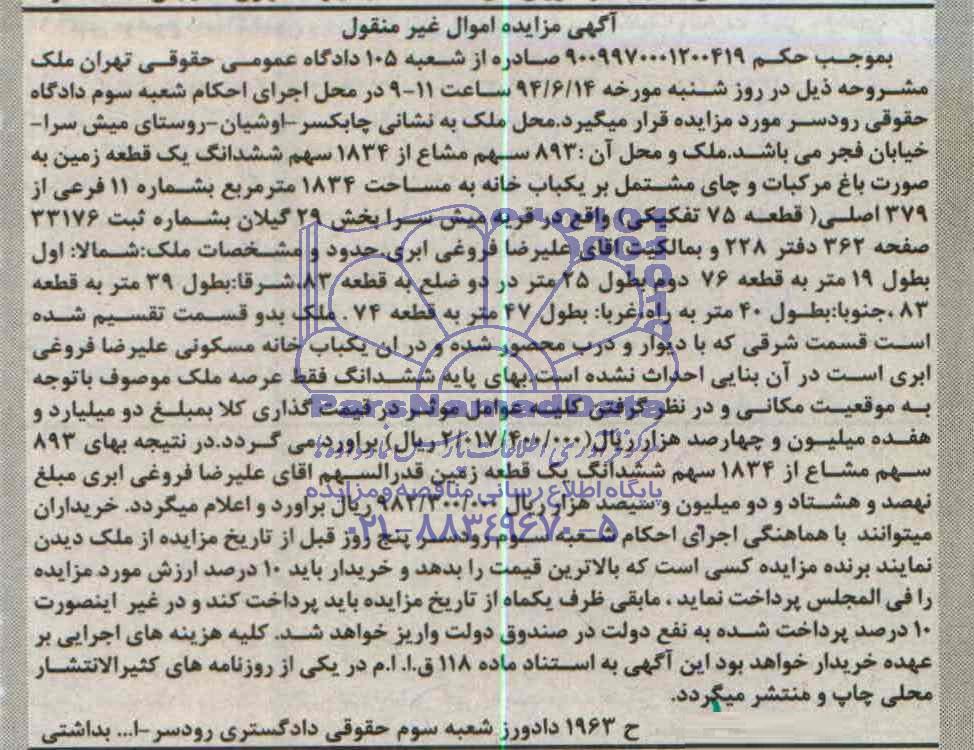 آگهی مزایده اموال غیر منقول
بموجب حکم ۹۰۰۹۹۷۰۰۰۱۲۰۰۴۱۹ صادره از شعبه ۱۰۵ دادگاه عمومی حقوقی تهران ملک
مشروحه ذیل در روز شنبه مورخه ۹۴/۶/۱۴ ساعت ۱۱-۹ در محل اجرای احکام شعبه سوم دادگاه
حقوقی رودسر مورد مزایده قرار میگیرد.محل ملک به نشانی چابکسر-اوشیان-روستای میش سرا-
خیابان فجر می باشد.ملک و محل آن :۸۹۳ سهم مشاع از ۱۸۳۴ سهم ششدانگ یک قطعه زمین به
صورت باغ مرکبات و چای مشتمل بر یکباب خانه به مساحت ۱۸۳۴ مترمربع بشماره ۱۱ فرعی از
۳۷۹ اصلی( قطعه ۷۵ تفکیکی) واقع در قریه میش سرا بخش ۲۹ گیلان بشماره ثبت ۳۳۱۷۶
صفحه ۳۶۲ دفتر ۲۲۸ و بمالکیت اقای علیرضا فروغی ابری.حدود و مشخصات ملک:شمالا: اول
بطول ۱۹ متر به قطعه ۷۶ دوم بطول ۲۵ متر در دو ضلع به قطعه ۸۳،شرقا:بطول ۳۹ متر به قطعه
۸۳ ،جنوبا:بطول ۴۰ متر به راه،غربا: بطول ۴۷ متر به قطعه ۷۴ . ملک بدو قسمت تقسیم شده
است قسمت شرقی که با دیوار و درب محصور شده و در ان یکباب خانه مسکونی علیرضا فروغی
ابری است در آن بنایی احداث نشده است.بهای پایه ششدانگ فقط عرصه ملک موصوف باتوجه
به موقعیت مکانی و در نظر گرفتن کلیه عوامل موثر در قیمت گذاری کلا بمبلغ دو میلیارد و
هفده میلیون و چهارصد هزار ریال(۲/۰۱۷/۴۰۰/۰۰۰ ریال) براورد می گردد.در نتیجه بهای ۸۹۳
سهم مشاع از ۱۸۳۴ سهم ششدانگ یک قطعه زمین قدرالسهم اقای علیرضا فروغی ابری مبلغ
نهصد و هشتاد و دو میلیون و سیصد هزار ریال ۹۸۲/۳۰۰/۰۰۰ ریال براورد و اعلام میگردد. خریداران
میتوانند با هماهنگی اجرای احکام شعبه سوم رودسر پنج روز قبل از تاریخ مزایده از ملک دیدن
نمایند برنده مزایده کسی است که بالاترین قیمت را بدهد و خریدار باید ۱۰ درصد ارزش مورد مزایده
را فی المجلس پرداخت نماید ، مابقی ظرف یکماه از تاریخ مزایده باید پرداخت کند و در غیر اینصورت
۱۰ درصد پرداخت شده به نفع دولت در صندوق دولت واریز خواهد شد. کلیه هزینه های اجرایی بر
عهده خریدار خواهد بود این آگهی به استناد ماده ۱۱۸ ق.ا. ا.م در یکی از روزنامه های کثیرالانتشار
محلی چاپ و منتشر میگردد.
ح ۱۹۶۳ دادورز شعبه سوم حقوقی دادگستری رودسر-ا... بداشتی
ParsNamadData
پایگاه اطلاع رسانی مناقصه و مزایده
۰۲۱-۸۸۳۴۹۶۷۰-۵